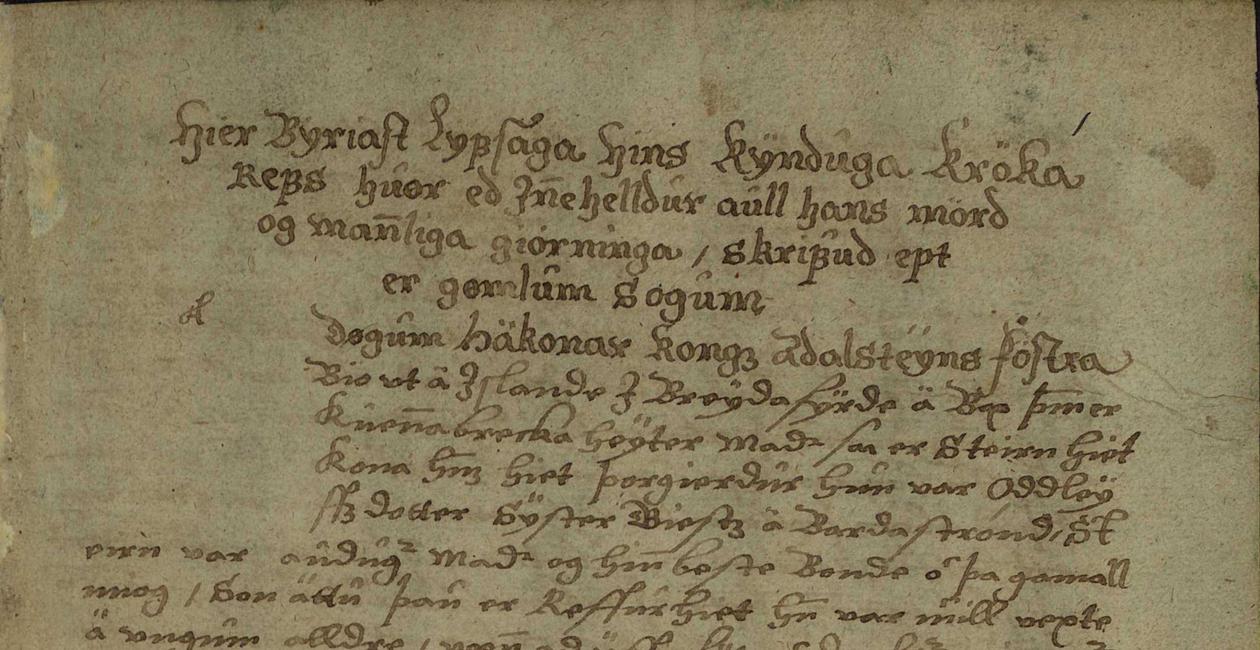 Hier Byriast Lyfsaga hins Kÿnduga Kröká
Refs huor ed Jn̄ehelldur aúll hans mord
og man̄liga giorninga / skrifud ept
er gomlúm Sogúm
A
dogúm Häkonar kongz Adalsteÿns föstra
Bio vt ä Jslande J Breÿdafyrde ä Bæ þeim er
kúen̄abrecka heÿter Madr sa er Steirn hiet
kona hn̄z hiet þorgierdúr hún var Oddleÿ
ffz dotter Sÿster Giestz ä Bardaströnd, St
eirn var aúdúgr Madr og hin̄ beste Bonde o þa gamall
miog / Son ättú þaú er Reffúr hiet hn̄ var mill vexte
ä vngúm alldre /